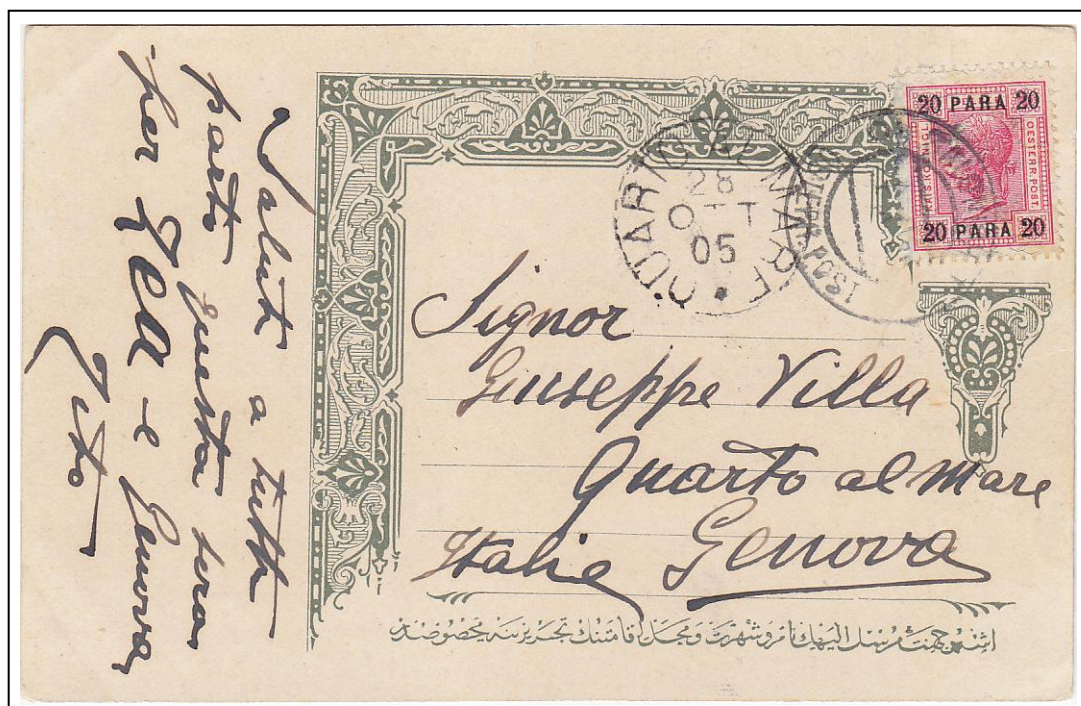 Saluti a tutti
parto questa sera
per Gea e Genova
Tito
20 PARA 20
KAIS. KÖNIGL.
OESTERR. POST
20 PARA 20
QUARTO AL MARE
28
OTT
05
POST
Signor
Giuseppe Villa
Quarto al Mare
Italie Genova
اشبو جهت مرسل اليهك نام و شهرت و محل اقامتنك تحريرينه مخصوصدر